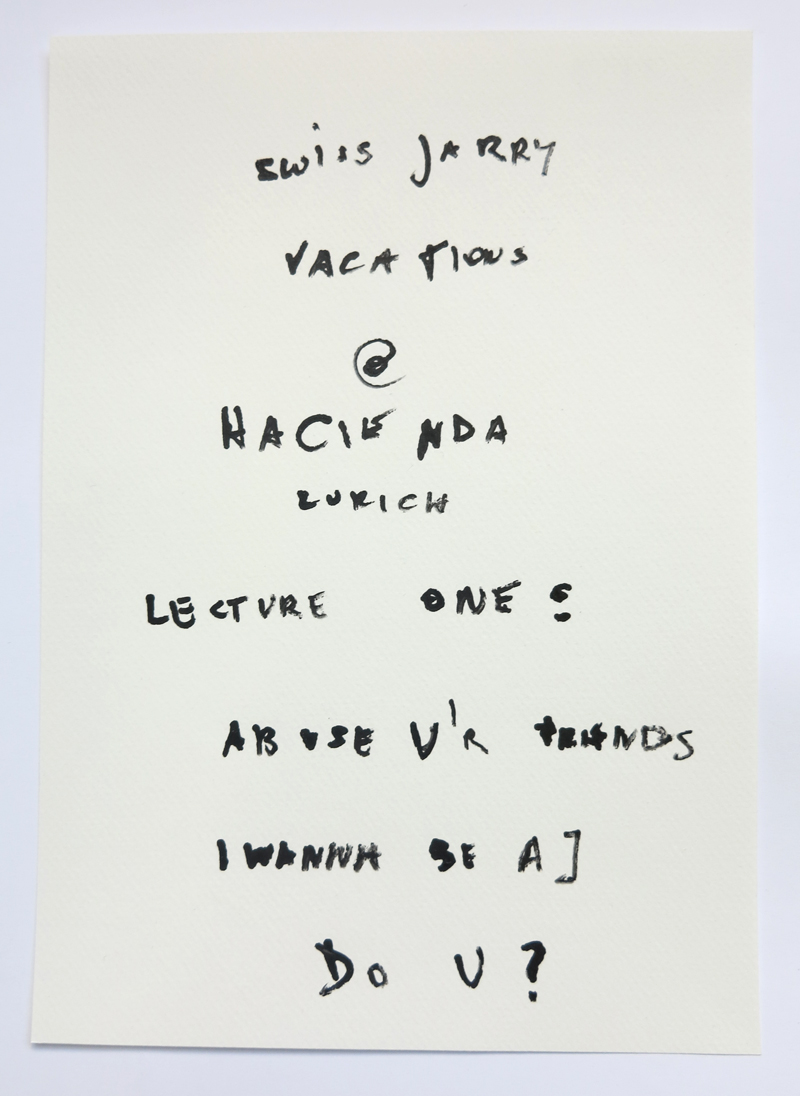 SWiSS JARRY
VACATIONS
@
HACIENDA
ZURICH
LECTURE ONE :
ABUSE U'R
I WANNA BE A ]
Do U ?